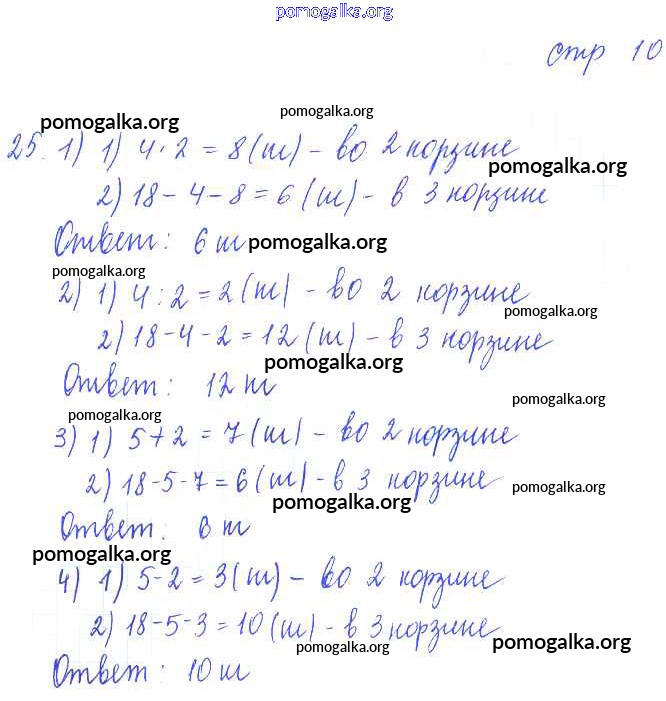 pomogalka.org
стр 10
pomogalka.org
pomogalka.org
25. 1) 1) 4 · 2 = 8 (ш) – во 2 корзине
pomogalka.org
2) 18 – 4 – 8 = 6 (ш) – в 3 корзине
Ответ: 6 ш
pomogalka.org
pomogalka.org
2) 1) 4 : 2 = 2 (ш) – во 2 корзине
pomogalka.org
2) 18 – 4 – 2 = 12 (ш) – в 3 корзине
pomogalka.org
Ответ: 12 ш
pomogalka.org
pomogalka.org
3) 1) 5 + 2 = 7 (ш) – во 2 корзине
2) 18 – 5 – 7 = 6 (ш) – в 3 корзине
pomogalka.org
pomogalka.org
Ответ: 6 ш
pomogalka.org
4) 1) 5 – 2 = 3 (ш) – во 2 корзине
2) 18 – 5 – 3 = 10 (ш) – в 3 корзине
pomogalka.org
pomogalka.org
Ответ: 10 ш